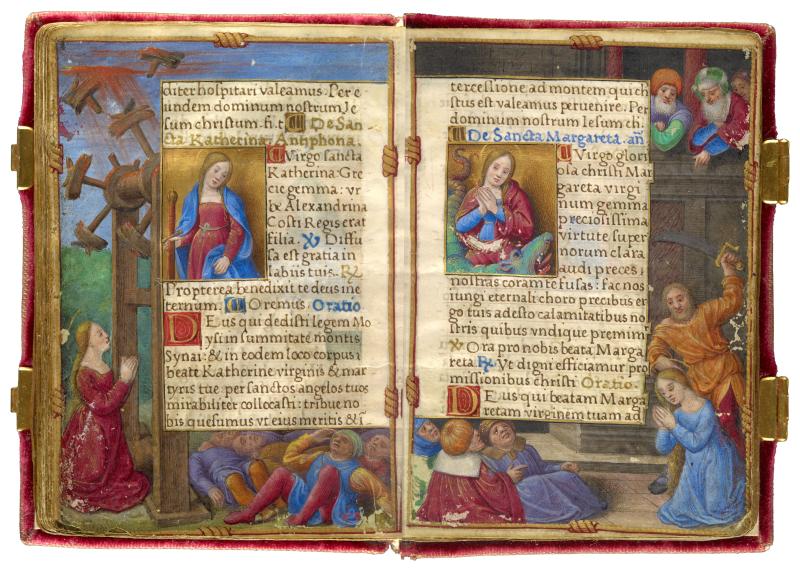 diter hospitari valeamus. Per e
undem dominum nostrum Je
sum christum. fi. t. De San
cta Katherina, Antiphona.
Virgo sancta
Katherina: Gre
cie gemma: vr
be Alexandrina
Costi Regis erat
filia. ℣ Diffu
sa est gratia in
labiis tuis. ℞
Propterea benedixit te deus ine
ternum. Oremus Oratio
Deus qui dedisti legem Mo
ysi in summitate montis
Synai: & in eodem loco corpus
beate Katherine virginis & mar
tyris tue: per sanctos angelos tuos
mirabiliter collocasti: tribue no
bis quesumus vt eius meritis & ī
tercessione, ad montem qui ch
stus est valeamus peruenire. Per
dominum nostrum Iesum ch.
De Sancta Margareta. añ
Virgo glori
osa christi Mar
gareta virgi
num gemma
preciosissima
virtute super
norum clara
audi preces
nostras coram te fusas: fac nos
iungi eternali choro precibus er
go tuis adesto calamitatibus no
stris quibus vndique premimr
℣ Ora pro nobis beata Marga
reta. ℞ Vt digni efficiamur pro
missionibus christi Oratio.
Deus qui beatam Marga
retam virginem tuam ad